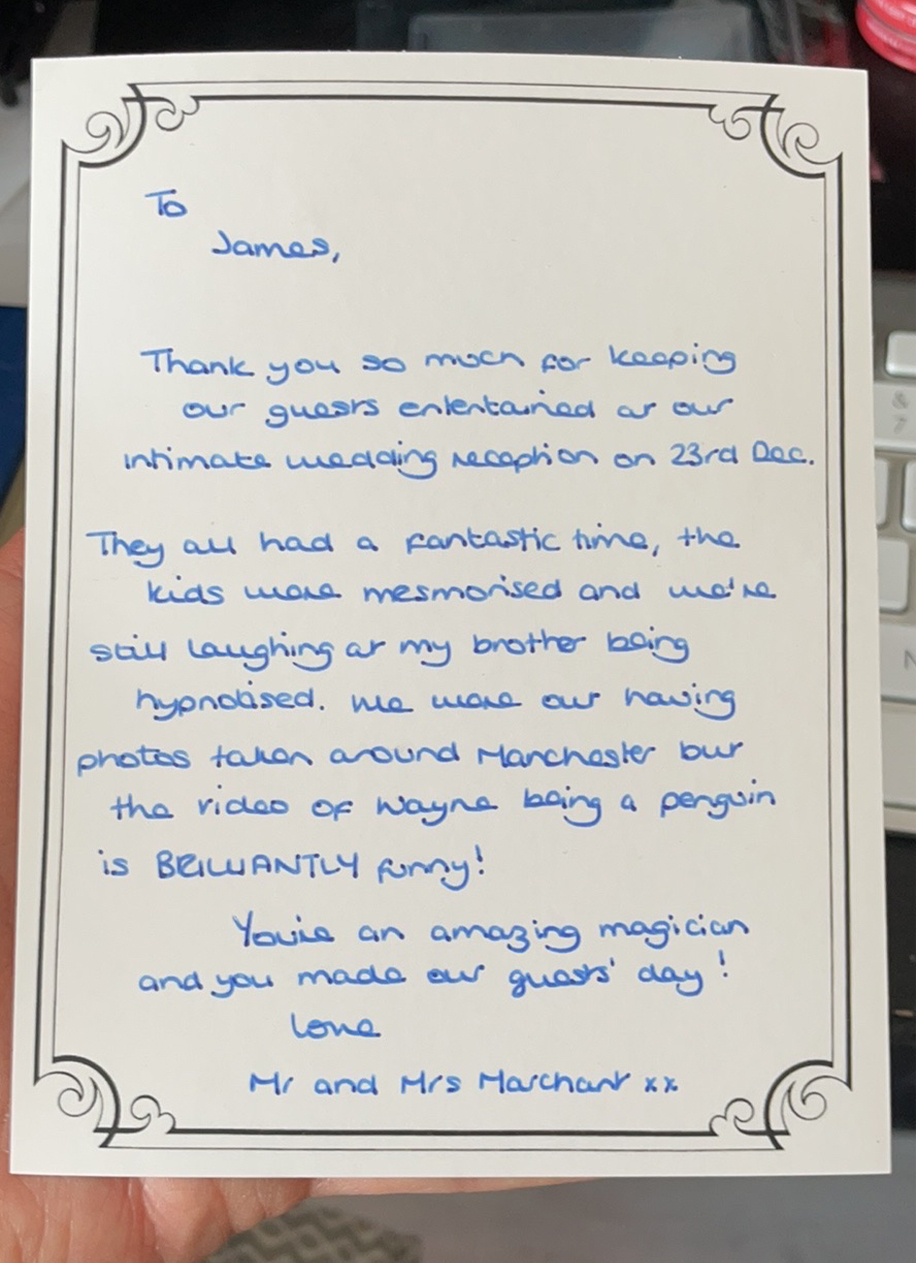 To
James,
Thank you so much for keeping
our guests entertained at our
intimate wedding reception on 23rd Dec.
They all had a fantastic time, the
kids were mesmorised and we're
still laughing at my brother being
hypnotised. We were out having
photos taken around Manchester but
the video of Wayne being a penguin
is BRILLIANTLY funny!
You're an amazing magician
and you made our guests' day!
Love
Mr and Mrs Marchant xx
&
7
N